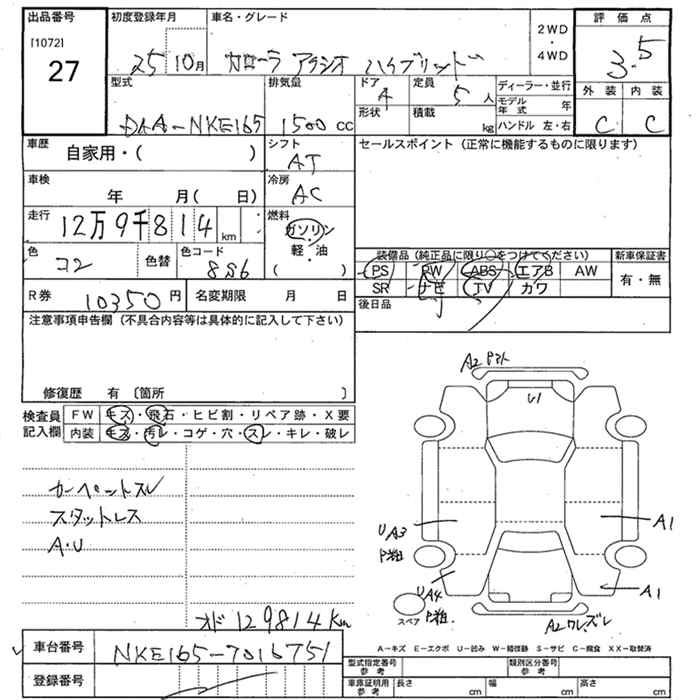 出品番号 初度登録年月 車名・グレード 2WD・4WD 評価点
[1072]
27 25 10月 カローラ アクシオ ハイブリッド 3.5
型式 排気量 ドア 4 定員 5人 ディーラー・並行 外装 内装
形状 積載 kg モデル年式 年
DAA-NKE165 1500cc ハンドル 左・右 C C
車歴 自家用・( ) シフト AT セールスポイント (正常に機能するものに限ります)
車検 年 月( 日) 冷房 AC
走行 12万9千814km 燃料 ガソリン・軽・油 ( )
色 コン 色替 色コード 8S6
装備品 (純正品に限り○をつけてください) 新車保証書
PS PW ABS エアB AW 有・無
SR ナビ TV カワ
R券 10350円 名変期限 月 日 後日品
注意事項申告欄 (不具合内容等は具体的に記入して下さい)
修復歴 有 [箇所 ]
検査員記入欄 FW キズ・飛石・ヒビ割・リペア跡・X要
内装 キズ・汚レ・コゲ・穴・スレ・キレ・破レ
A2
U1
カーペントスレ
スタットレス
A・U
UA3
P粗
A1
UA4
P粗
A1
スペア
オド 129814Km
A2 ワレ、ズレ
車台番号 NKE165-7016751
A－キズ E－エクボ U－凹み W－補修跡 S－サビ C－腐食 XX－取替済
登録番号
型式指定番号 参考 類別区分番号 参考
車庫証明用 参考 長さ cm 幅 cm 高さ cm